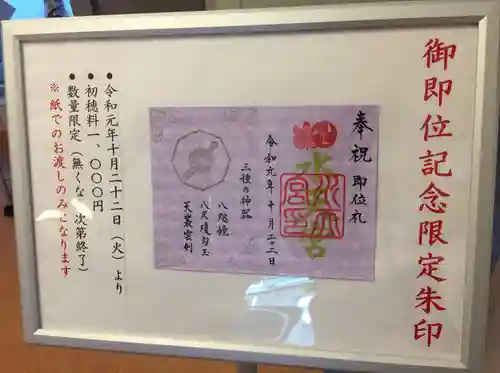 御即位記念限定朱印
奉祝 即位礼
令和元年十月二十二日
三種の神器
八咫鏡
八尺瓊勾玉
天叢雲剣
●令和元年十月二十二日（火）より
●初穂料一、〇〇〇円
●数量限定（無くなり次第終了）
※紙でのお渡しのみになります